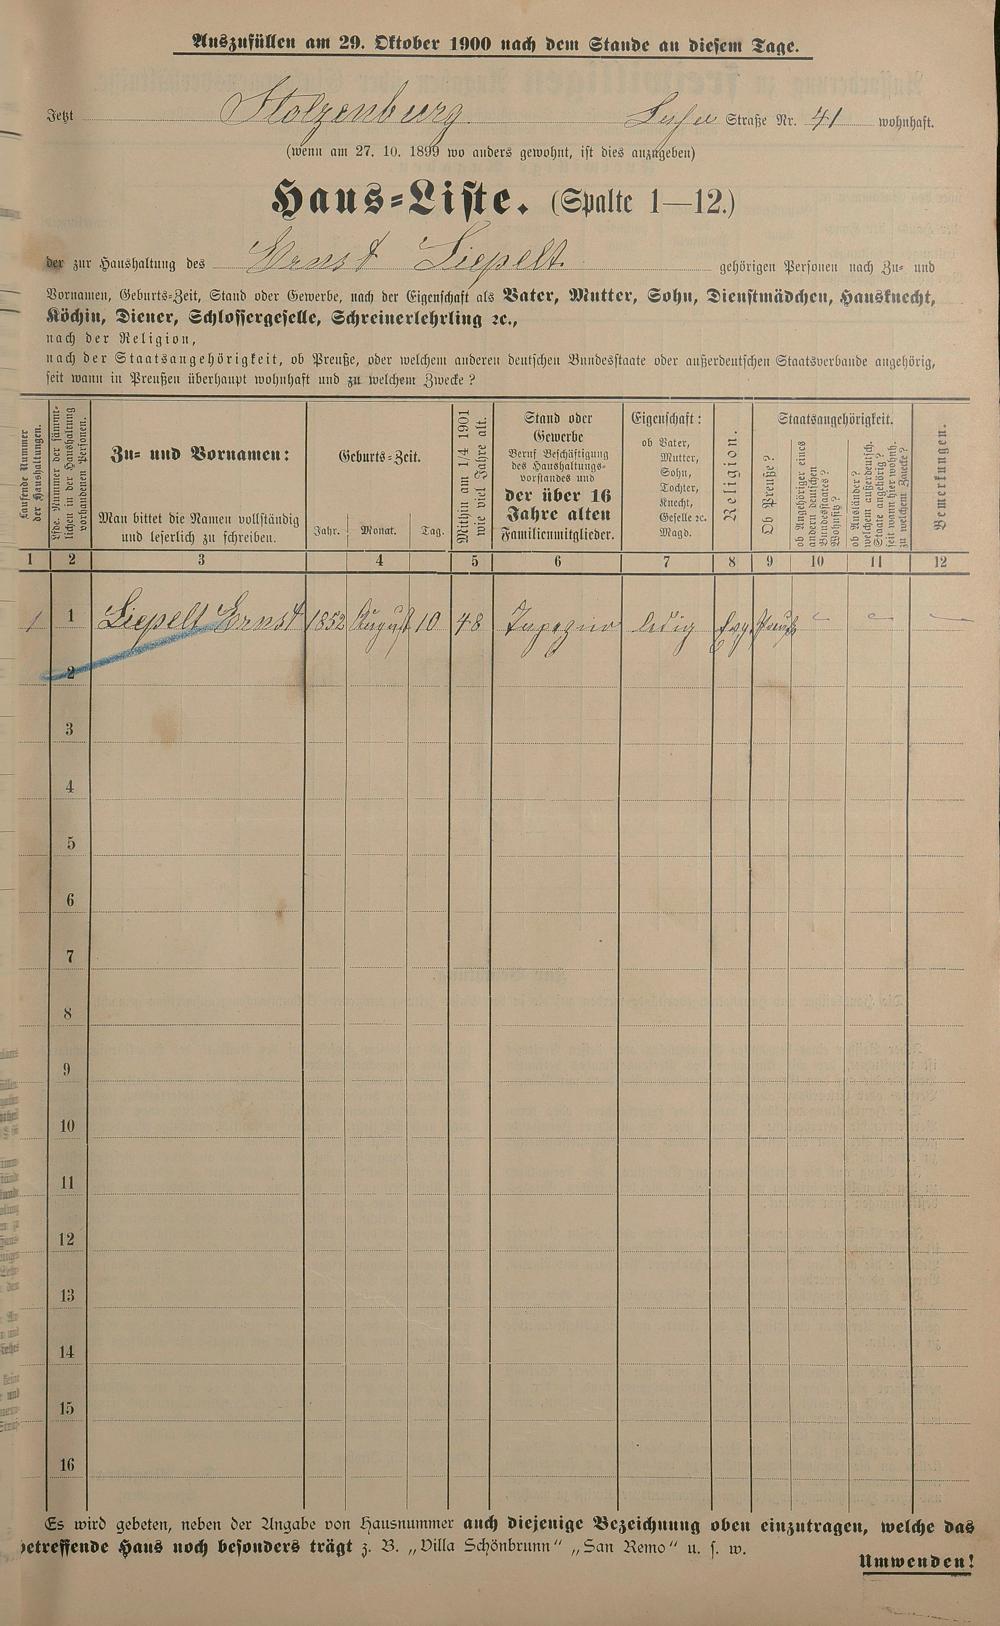 Auszufüllen am 29. Oktober 1900 nach dem Stande an diesem Tage.
Jetzt Stolzenburg Straße Nr. 41 wohnhaft.
(wenn am 27. 10. 1899 wo anders gewohnt, ist dies anzugeben)
Haus-Liste. (Spalte 1—12.)
der zur Haushaltung des Ernst Liepelt gehörigen Personen nach Zu- und
Vornamen, Geburts-Zeit, Stand oder Gewerbe, nach der Eigenschaft als Vater, Mutter, Sohn, Dienstmädchen, Hausknecht,
Köchin, Diener, Schlossergeselle, Schreinerlehrling ꝛc.,
nach der Religion,
nach der Staatsangehörigkeit, ob Preuße, oder welchem anderen deutschen Bundesstaate oder außerdeutschen Staatsverbande angehörig,
seit wann in Preußen überhaupt wohnhaft und zu welchem Zwecke?
Laufende Nummer
der Haushaltungen.
Lfde. Nummer der sämmt-
lichen in der Haushaltung
vorhandenen Personen.
Zu- und Vornamen:
Man bittet die Namen vollständig
und leserlich zu schreiben.
Geburts-Zeit.
Jahr. Monat. Tag.
Mithin am 1/4 1901
wie viel Jahre alt.
Stand oder
Gewerbe
Beruf Beschäftigung
des Haushaltungs-
vorstandes und
der über 16
Jahre alten
Familienmitglieder.
Eigenschaft:
ob Vater,
Mutter,
Sohn,
Tochter,
Knecht,
Geselle ꝛc.
Magd.
Religion.
Staatsangehörigkeit.
Ob Preuße?
ob Angehöriger eines
andern deutschen
Bundesstaates?
Wohnsitz?
ob Ausländer?
welchem außerdeutsch.
Staate angehörig?
seit wann hier wohnh.
zu welchem Zwecke?
Bemerkungen.
1 2 3 4 5 6 7 8 9 10 11 12
1 1 Liepelt Ernst 1852 August 10 48 ledig Evg. Preuß. - - -
2
3
4
5
6
7
8
9
10
11
12
13
14
15
16
Es wird gebeten, neben der Angabe von Hausnummer auch diejenige Bezeichnung oben einzutragen, welche das
betreffende Haus noch besonders trägt z. B. „Villa Schönbrunn" „San Remo" u. s. w.
Umwenden!